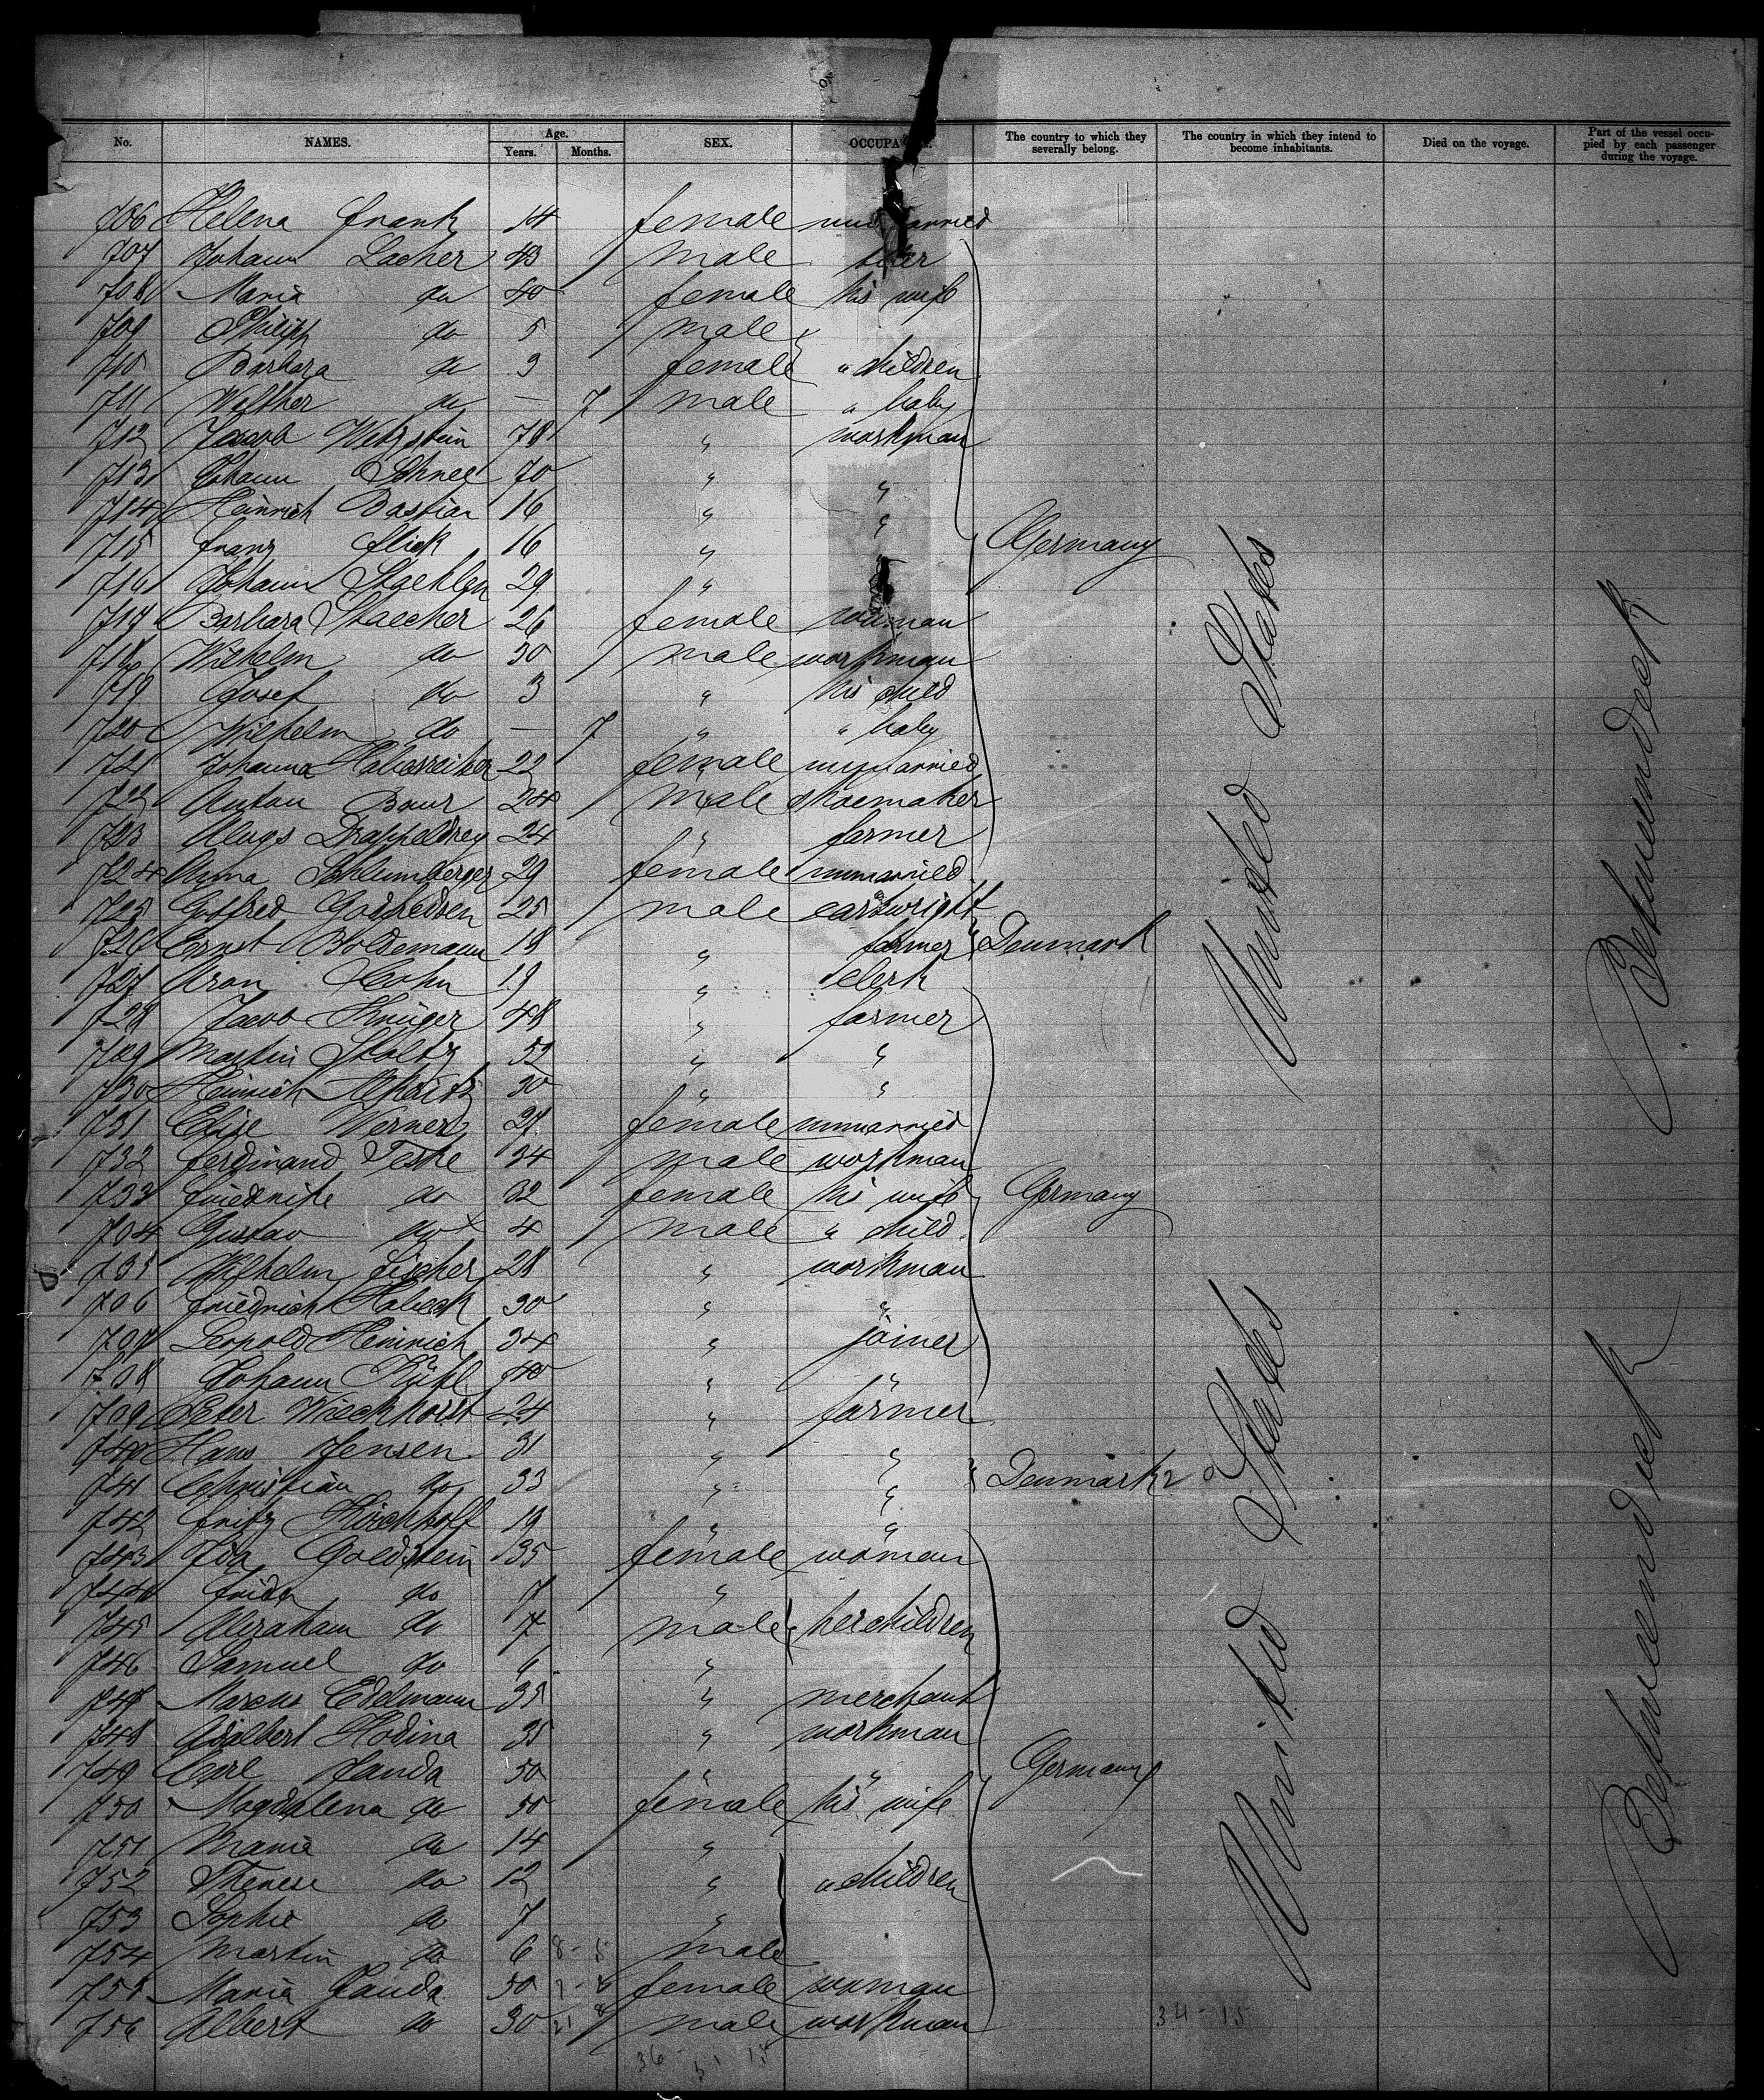 No. NAMES. Age. Years. Months. SEX. OCCUPA The country to which they severally belong. The country in which they intend to become inhabitants. Died on the voyage. Part of the vessel occupied by each passenger during the voyage.
706 Helena Frank 14 female unmarried
707 Johann Lacher 43 male
708 Maria do 40 female his wife
709 Philipp do 5 male
710 Barbara do 3 female " children
711 Walther do — 7 male " baby
712 Jacob Wetzstein 78 " workman
713 Johann Schnee 70 " "
714 Heinrich Bastian 16 " "
715 Franz Flick 16 " " Germany
716 Johann Staehlen 29 "
717 Barbara Staecher 26 female woman
718 Wilhelm do 30 male workman
719 Josef do 3 " his child
720 Wilhelm do — 7 " " baby
721 Johanna 22 female unmarried
722 Anton Baur 24 male shoemaker
723 24 " farmer
724 Anna Schlumberger 29 female unmarried
725 Gotfred Godfredsen 25 male cartwright
726 Ernst Boldemann 18 " farmer Denmark
727 Aron Cohn 19 " clerk
728 Jacob Krüger 48 " farmer
729 Martin Stoltz 52 " "
730 Heinrich 30 " "
731 Elise Werner 27 female unmarried
732 Ferdinand Teske 34 male workman
733 Friedrike do 32 female his wife Germany
734 Gustav do 4 male " child
735 Wilhelm Fischer 28 " workman
736 Friedrich Habeck 30 " "
737 Leopold Heinrich 34 " joiner
738 Johann Kühl 40 " "
739 Peter Wieckhorst 24 " farmer
740 Hans Jensen 31 " "
741 Christian do 33 " " Denmark
742 Fritz Kirchhoff 19 " "
743 Ida Goldstein 35 female woman
744 Frida do 7 "
745 Abraham do 7 male her children
746 Samuel do "
747 Marcus Edelmann 35 " merchant
748 Adalbert Hodina 35 " workman
749 Carl Janda 50 " " Germany
750 Magdalena do 50 female his wife
751 Maria do 14 "
752 Therese do 12 " " children
753 Sophie do 7 "
754 Martin do 6 male
755 Maria Janda 50 female woman
756 Albert do 30 male workman
34-15
United States
United States
Betweendeck
Betweendeck